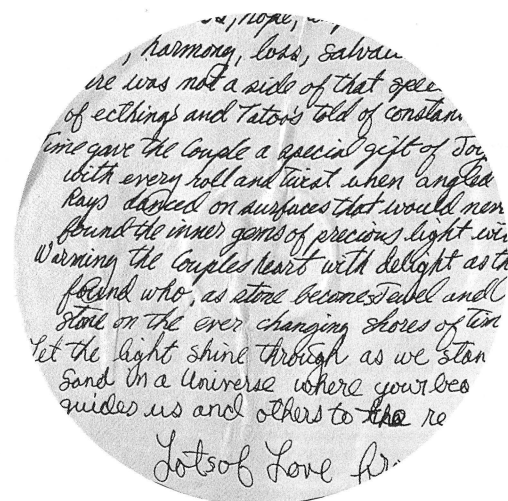 hope,
, harmony, loss,
re was not a side of that
of ecthings and Tatoo's told of
Time gave the Couple a special gift of
with every roll and twist when angled
Rays danced on surfaces that would
found the inner gems of precious light
Warming the Couples heart with delight as
found who, as stone becomes Jewel and
Stone on the ever changing shores of
Let the light shine through as we
Sand in a Universe where your
guides us and others to the re
Lots of Love